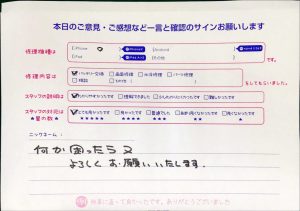 本日のご意見・ご感想など一言と確認のサインお願いします
修理機種は
iPhone
iPad
Android
その他
です。
修理内容は
バッテリー交換
画面修理
水没修理
パーツ修理
その他
をしてもらいました。
スタッフの説明は
わかりやすかったです
理解できました
難しかったです
スタッフの対応は
とても良かったです
良かったです
普通でした
悪かったです
★星の数
★★★★★
★★★★
★★★
★★
★
ニックネーム:
何か困ったら又
よろしくお願いいたします。
ありがとうございました